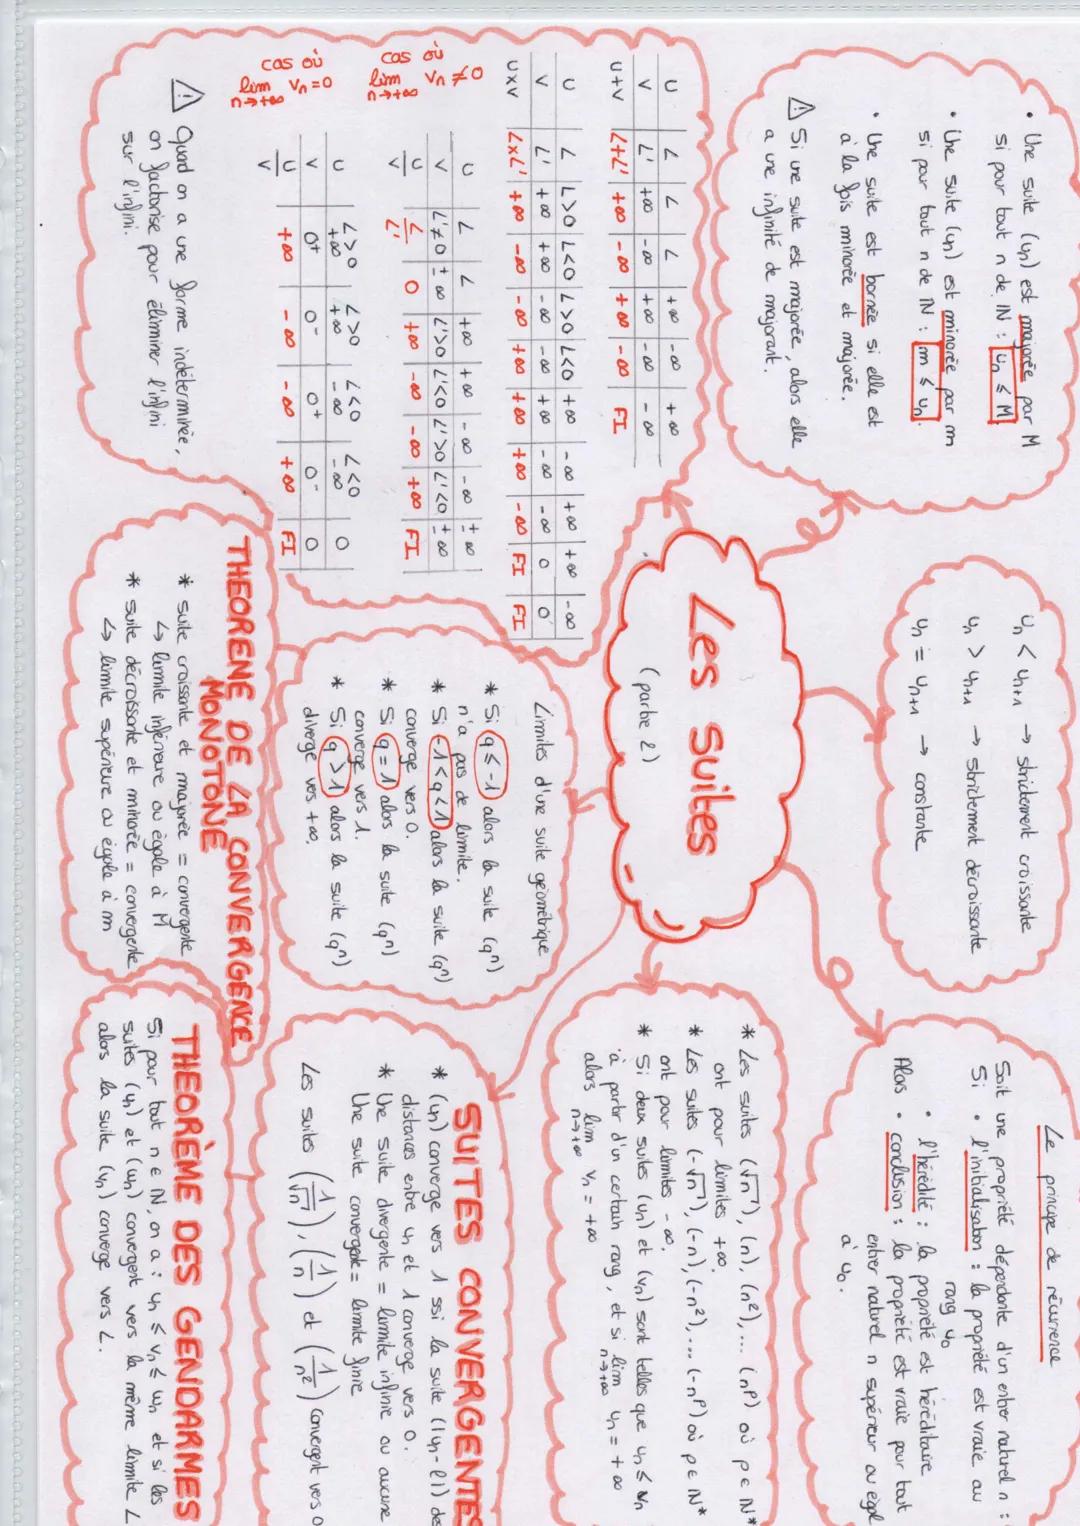 Les Suites
(partie 2)
• Une suite (un) est majorée par M
si pour tout n de IN : un ≤ M
• Une suite (un) est minorée par m
si pour tout n de IN : m ≤ un.
• Une suite est bornée si elle est
à la fois minorée et majorée.
⚠ Si une suite est majorée, alors elle
a une infinité de majorant.
un < un+1 → strictement croissante
un > un+1 → strictement décroissante
un = un+1 → constante
Le principe de récurrence
Soit une propriété dépendante d'un entier naturel n :
Si • l'initialisation : la propriété est vraie au
rang u0
• l'hérédité : la propriété est héréditaire
Alors • conclusion : la propriété est vraie pour tout
entier naturel n supérieur ou égal
à u0.
U L L L +∞ -∞ +∞
V L' +∞ -∞ +∞ -∞ -∞
U+V L+L' +∞ -∞ +∞ -∞ FI
U L L>0 L<0 L>0 L<0 +∞ -∞ +∞ +∞ -∞
V L' +∞ +∞ -∞ -∞ +∞ -∞ -∞ 0 0
UxV LxL' +∞ -∞ -∞ +∞ +∞ +∞ -∞ FI FI
cas où
lim vn ≠0
n→+∞
U L L +∞ +∞ -∞ -∞ ±∞
V L'≠0 ±∞ L'>0 L'<0 L'>0 L'<0 ±∞
U/V L/L' 0 +∞ -∞ -∞ +∞ FI
cas où
lim vn=0
n→+∞
U L>0 +∞ L>0 +∞ L<0 -∞ L<0 -∞ 0
V 0+ 0- 0+ 0- 0
U/V +∞ -∞ -∞ +∞ FI
⚠ Quand on a une forme indéterminée,
on factorise pour éliminer l'infini
sur l'infini.
Limites d'une suite géométrique
* Si q ≤ -1 alors la suite (qⁿ)
n'a pas de limite.
* Si -1<q<1 alors la suite (qⁿ)
converge vers 0.
* Si q = 1 alors la suite (qⁿ)
converge vers 1.
* Si q > 1 alors la suite (qⁿ)
diverge vers +∞.
* Les suites (√n), (n), (n²),... (nᵖ) où p∈IN*
ont pour limites +∞.
* Les suites (-√n), (-n), (-n²),... (-nᵖ) où p∈IN*
ont pour limites -∞.
* Si deux suites (un) et (vn) sont telles que un ≤ vn
à partir d'un certain rang, et si lim un = +∞
n→+∞
alors lim vn = +∞
n→+∞
SUITES CONVERGENTES
* (un) converge vers 1 ssi la suite (|un-l|) des
distances entre un et 1 converge vers 0.
* Une suite divergente = limite infinie ou aucune
Une suite convergente = limite finie
Les suites (1/√n), (1/n) et (1/n²) convergent vers 0
THEOREME DE LA CONVERGENCE
MONOTONE
* suite croissante et majorée = convergente
↳ limite inférieure ou égale à M
* suite décroissante et minorée = convergente
↳ limite supérieure ou égale à m
THEORÈME DES GENDARMES
Si pour tout n∈IN, on a : un ≤ vn ≤ wn et si les
suites (un) et (wn) convergent vers la même limite L
alors la suite (vn) converge vers L.